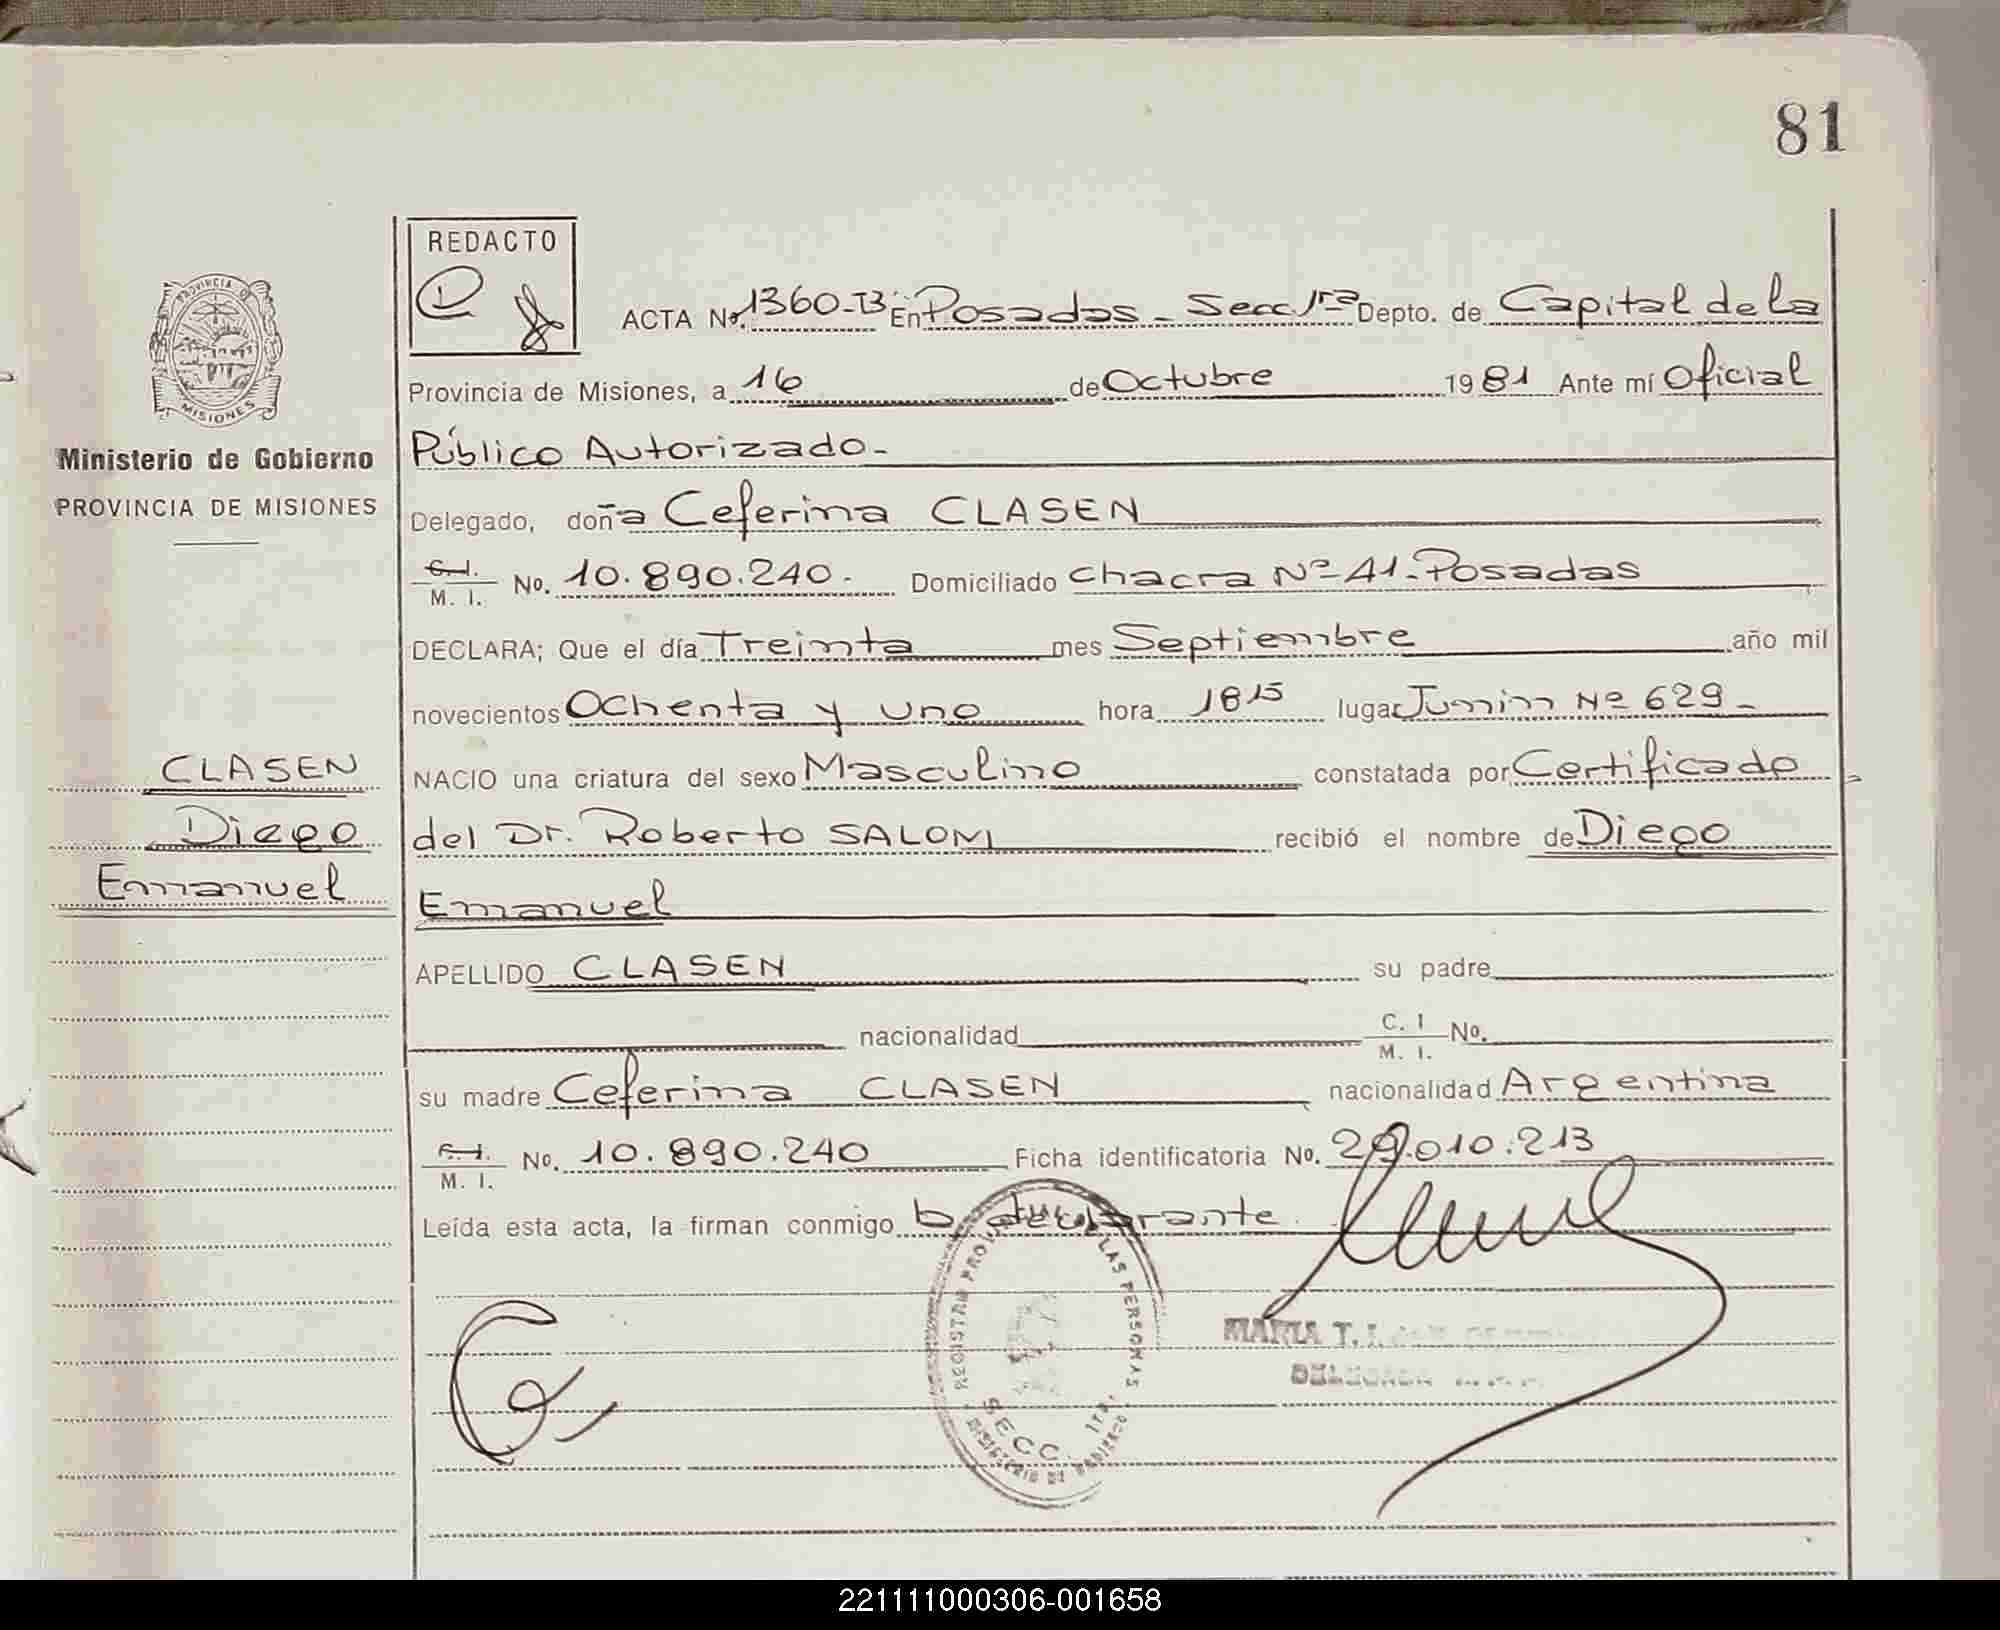 81
REDACTO
ACTA No. 1360-B En Posadas - Secc 1ra Depto. de Capital de la
Provincia de Misiones, a 16 de Octubre 1981 Ante mí Oficial
Público Autorizado.-
PROVINCIA DE
MISIONES
Ministerio de Gobierno
PROVINCIA DE MISIONES
Delegado, doña Ceferina CLASEN
C. I. M. I. No. 10.890.240. Domiciliado Chacra Nº 41-Posadas
DECLARA; Que el día Treinta mes Septiembre año mil
novecientos Ochenta y uno hora 18 15 lugar Junin Nº 629-
NACIO una criatura del sexo Masculino constatada por Certificado
del Dr. Roberto SALOM recibió el nombre de Diego
Emanuel
CLASEN
Diego
Emanuel
APELLIDO CLASEN su padre
nacionalidad C. I M. I. No.
su madre Ceferina CLASEN nacionalidad Argentina
C. I. M. I. No. 10.890.240 Ficha identificatoria No. 29.010.213
Leída esta acta, la firman conmigo la declarante.
REGISTRO PROV. LAS PERSONAS
SECC. 1ra.
MINISTERIO DE GOBIERNO
MARIA T.
DELEGADA
221111000306-001658